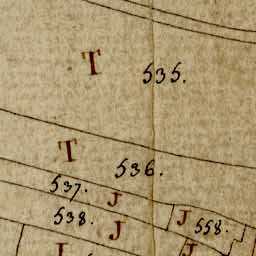 T 535.
T 536.
537. J
538. J J 558.
J J